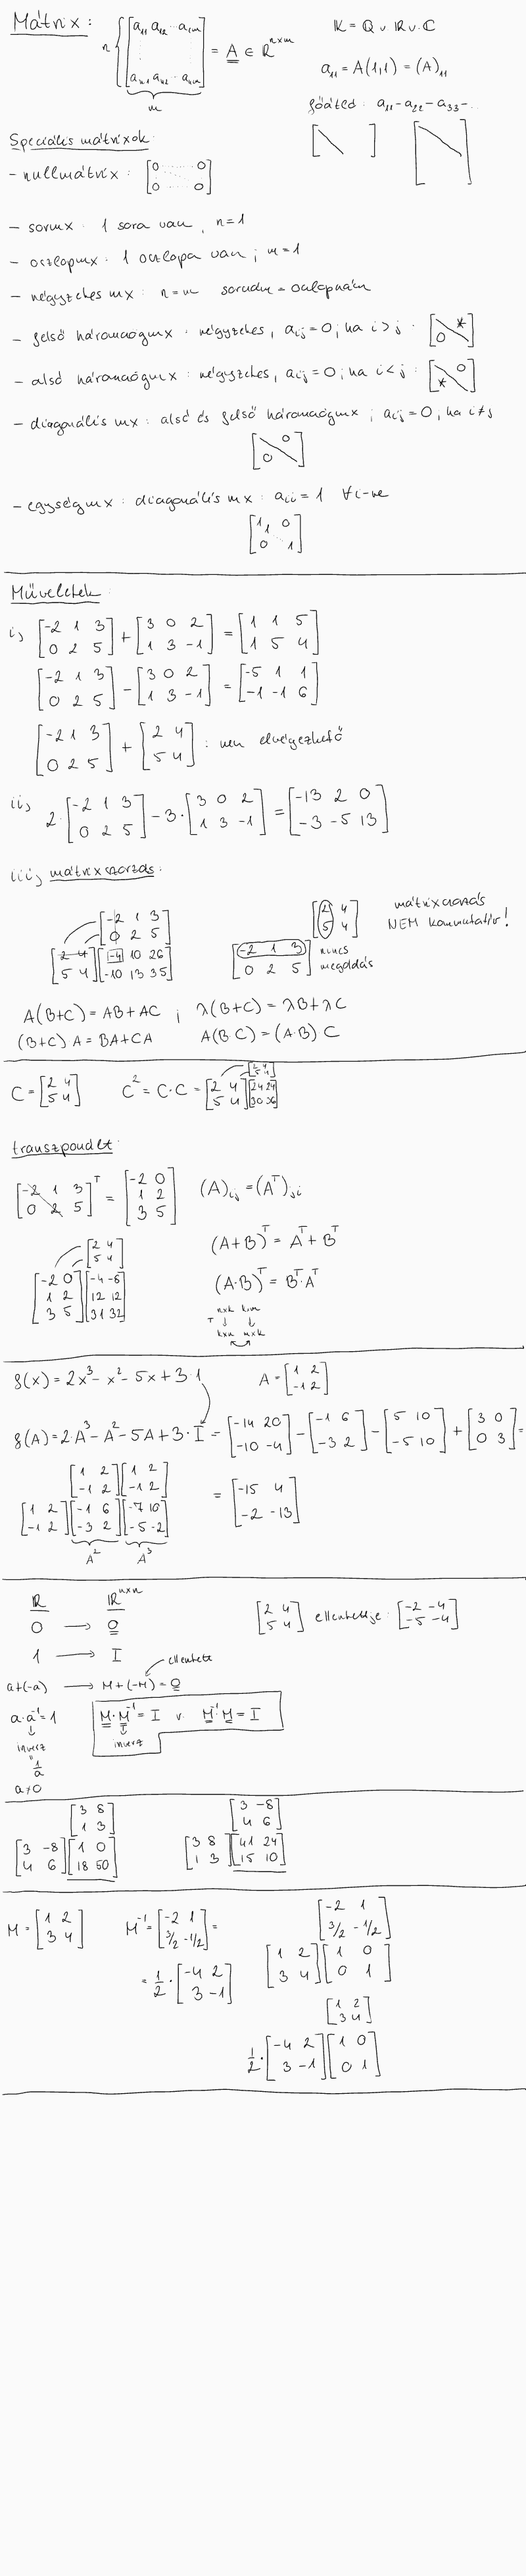 Mátrix: n{[a₁₁ a₁₂ ... a₁ₘ; aₙ₁ aₙ₂ ... aₙₘ] = A ∈ ℝⁿˣᵐ
m
𝕂 = ℚ v ℝ v. ℂ
a₁₁ = A(1,1) = (A)₁₁
főátló: a₁₁-a₂₂-a₃₃-...
Speciális mátrixok:
- nullmátrix: [0 ... 0; 0 ... 0]
- sormx: 1 sora van, n=1
- oszlopmx: 1 oszlopa van; m=1
- négyzetes mx: n=m
- felső háromszögmx: négyzetes, aᵢⱼ=0, ha i>j: [* 0]
- alsó háromszögmx: négyzetes, aᵢⱼ=0, ha i<j: [0 *]
- diagonális mx: alsó és felső háromszögmx; aᵢⱼ=0, ha i≠j
[0 0]
- egységmx: diagonális mx: aᵢᵢ=1 ∀i-re
[1 1 0; 0 1]
Műveletek:
i, [-2 1 3; 0 2 5] + [3 0 2; 1 3 -1] = [1 1 5; 1 5 4]
[-2 1 3; 0 2 5] - [3 0 2; 1 3 -1] = [-5 1 1; -1 -1 6]
[-2 1 3; 0 2 5] + [2 4; 5 4]: nem elvégezhető
ii, 2·[-2 1 3; 0 2 5] - 3·[3 0 2; 1 3 -1] = [-13 2 0; -3 -5 13]
iii, mátrixszorzás:
[-2 1 3; 0 2 5]
[2 4; 5 4] [-4 10 26; -10 13 35]
[2 4; 5 4]
[-2 1 3; 0 2 5] nincs megoldás
mátrixszorzás
NEM kommutatív!
A(B+C) = AB+AC ; λ(B+C) = λB+λC
(B+C)A = BA+CA A(B·C) = (A·B)C
C = [2 4; 5 4] C² = C·C = [2 4; 5 4] [2 4; 5 4] [24 24; 30 36]
transzponált:
[-2 1 3; 0 2 5]ᵀ = [-2 0; 1 2; 3 5] (A)ᵢⱼ = (Aᵀ)ⱼᵢ
(A+B)ᵀ = Aᵀ+Bᵀ
[2 4; 5 4]
[-2 0; 1 2; 3 5] [-4 -8; 12 12; 31 32]
(A·B)ᵀ = Bᵀ·Aᵀ
n×k k×m
T ↓ ↓
k×n m×k
f(x) = 2x³-x²-5x+3·1 A = [1 2; -1 2]
f(A) = 2·A³-A²-5A+3·I = [-14 20; -10 -4] - [-1 6; -3 2] - [5 10; -5 10] + [3 0; 0 3] =
[1 2; -1 2] [1 2; -1 2]
[1 2; -1 2] [-1 6; -3 2] [-7 10; -5 -2]
A² A³
= [-15 4; -2 -13]
ℝ ℝⁿˣⁿ
0 → 0
[2 4; 5 4] ellentettje: [-2 -4; -5 -4]
1 → I
ellentett
a+(-a) → M+(-M) = 0
a·a⁻¹=1
M·M⁻¹ = I v. M⁻¹·M = I
inverz
inverz
1/a
a≠0
[3 8; 1 3]
[3 -8; 4 6] [1 0; 18 50]
[3 -8; 4 6]
[3 8; 1 3] [41 24; 15 10]
M = [1 2; 3 4] M⁻¹ = [-2 1; 3/2 -1/2] =
= 1/2·[-4 2; 3 -1]
[-2 1; 3/2 -1/2]
[1 2; 3 4] [1 0; 0 1]
[1 2; 3 4]
1/2·[-4 2; 3 -1] [1 0; 0 1]